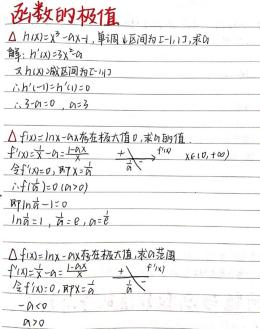 函数的极值
△ h(x)=x³-ax-1,单调↓区间为[-1,1],求a
解:h'(x)=3x²-a
又h(x)减区间为[-1,1]
∴h'(-1)=h'(1)=0
∴3-a=0,a=3
△ f(x)=lnx-ax存在极大值0,求a的值.
f'(x)=1/x-a=(1-ax)/x + 1/a - f'(x) x∈(0,+∞)
令f'(x)=0,即x=1/a
∴f(1/a)=0(a>0)
即ln1/a-1=0
ln1/a=1,1/a=e,a=1/e
△ f(x)=lnx-ax存在极大值,求a范围
f'(x)=1/x-a=(1-ax)/x + 1/a - f'(x)
令f'(x)=0,即x=1/a
-a<0
a>0